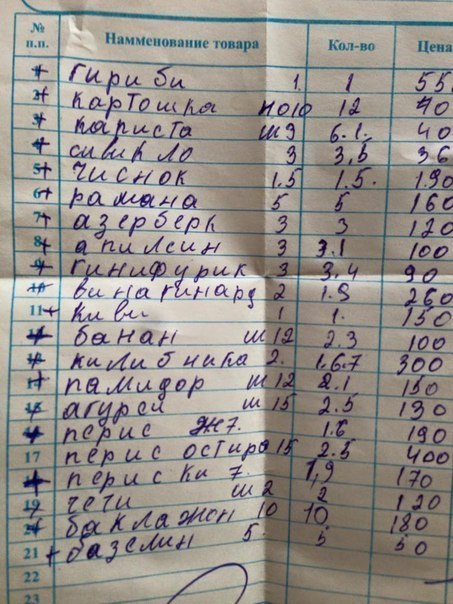 № п.п. Наименование товара Кол-во Цена
1 гириби 1. 1 55
2 картошка но10 12 40
3 кариста ш9 6.1. 40
4 сивикло 3 3,5 36
5 чиснок 1.5 1.5. 190
6 рамана 5 5 160
7 азерберк 3 3 120
8 апилсин 3 3.1 100
9 гинифурик 3 3,4 90
10 винагинард 2 1.9 260
11 киви 1 1. 150
12 банан ш12 2.3 100
13 килибника 2. 1.6.7 300
14 памидор ш12 2.1 150
15 агурси ш15 2.5 130
16 перис ж7. 1.6 190
17 перис остиро 15 2.5 400
18 перис ки 7. 1,9 170
19 чечи ш2 2 120
20 баклажон 10 10 180
21 базелин 5. 5 50
22
23